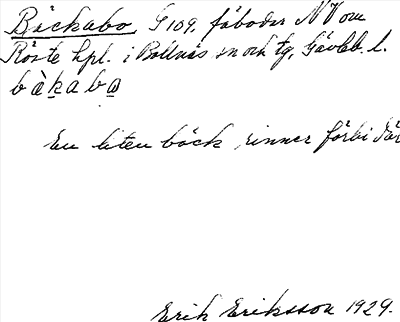 Bäckabo, G 109, fäboder NV om
Röste hpl. i Bollnäs sn och tg, Gävleb. l.
bàkabo
En liten bäck rinner förbi där
Erik Eriksson 1929.